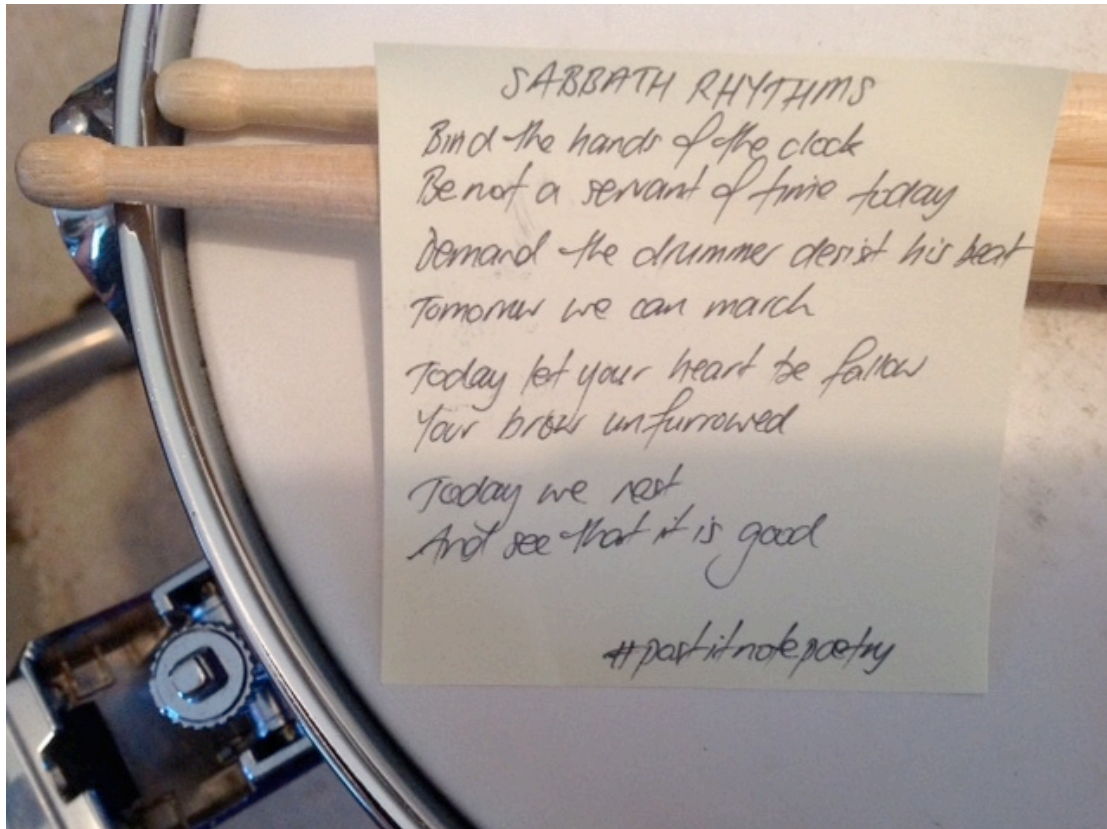 SABBATH RHYTHMS
Bind the hands of the clock
Be not a servant of time today
Demand the drummer desist his beat
Tomorrow we can march
Today let your heart be fallow
Your brow unfurrowed
Today we rest
And see that it is good
#postitnotepoetry